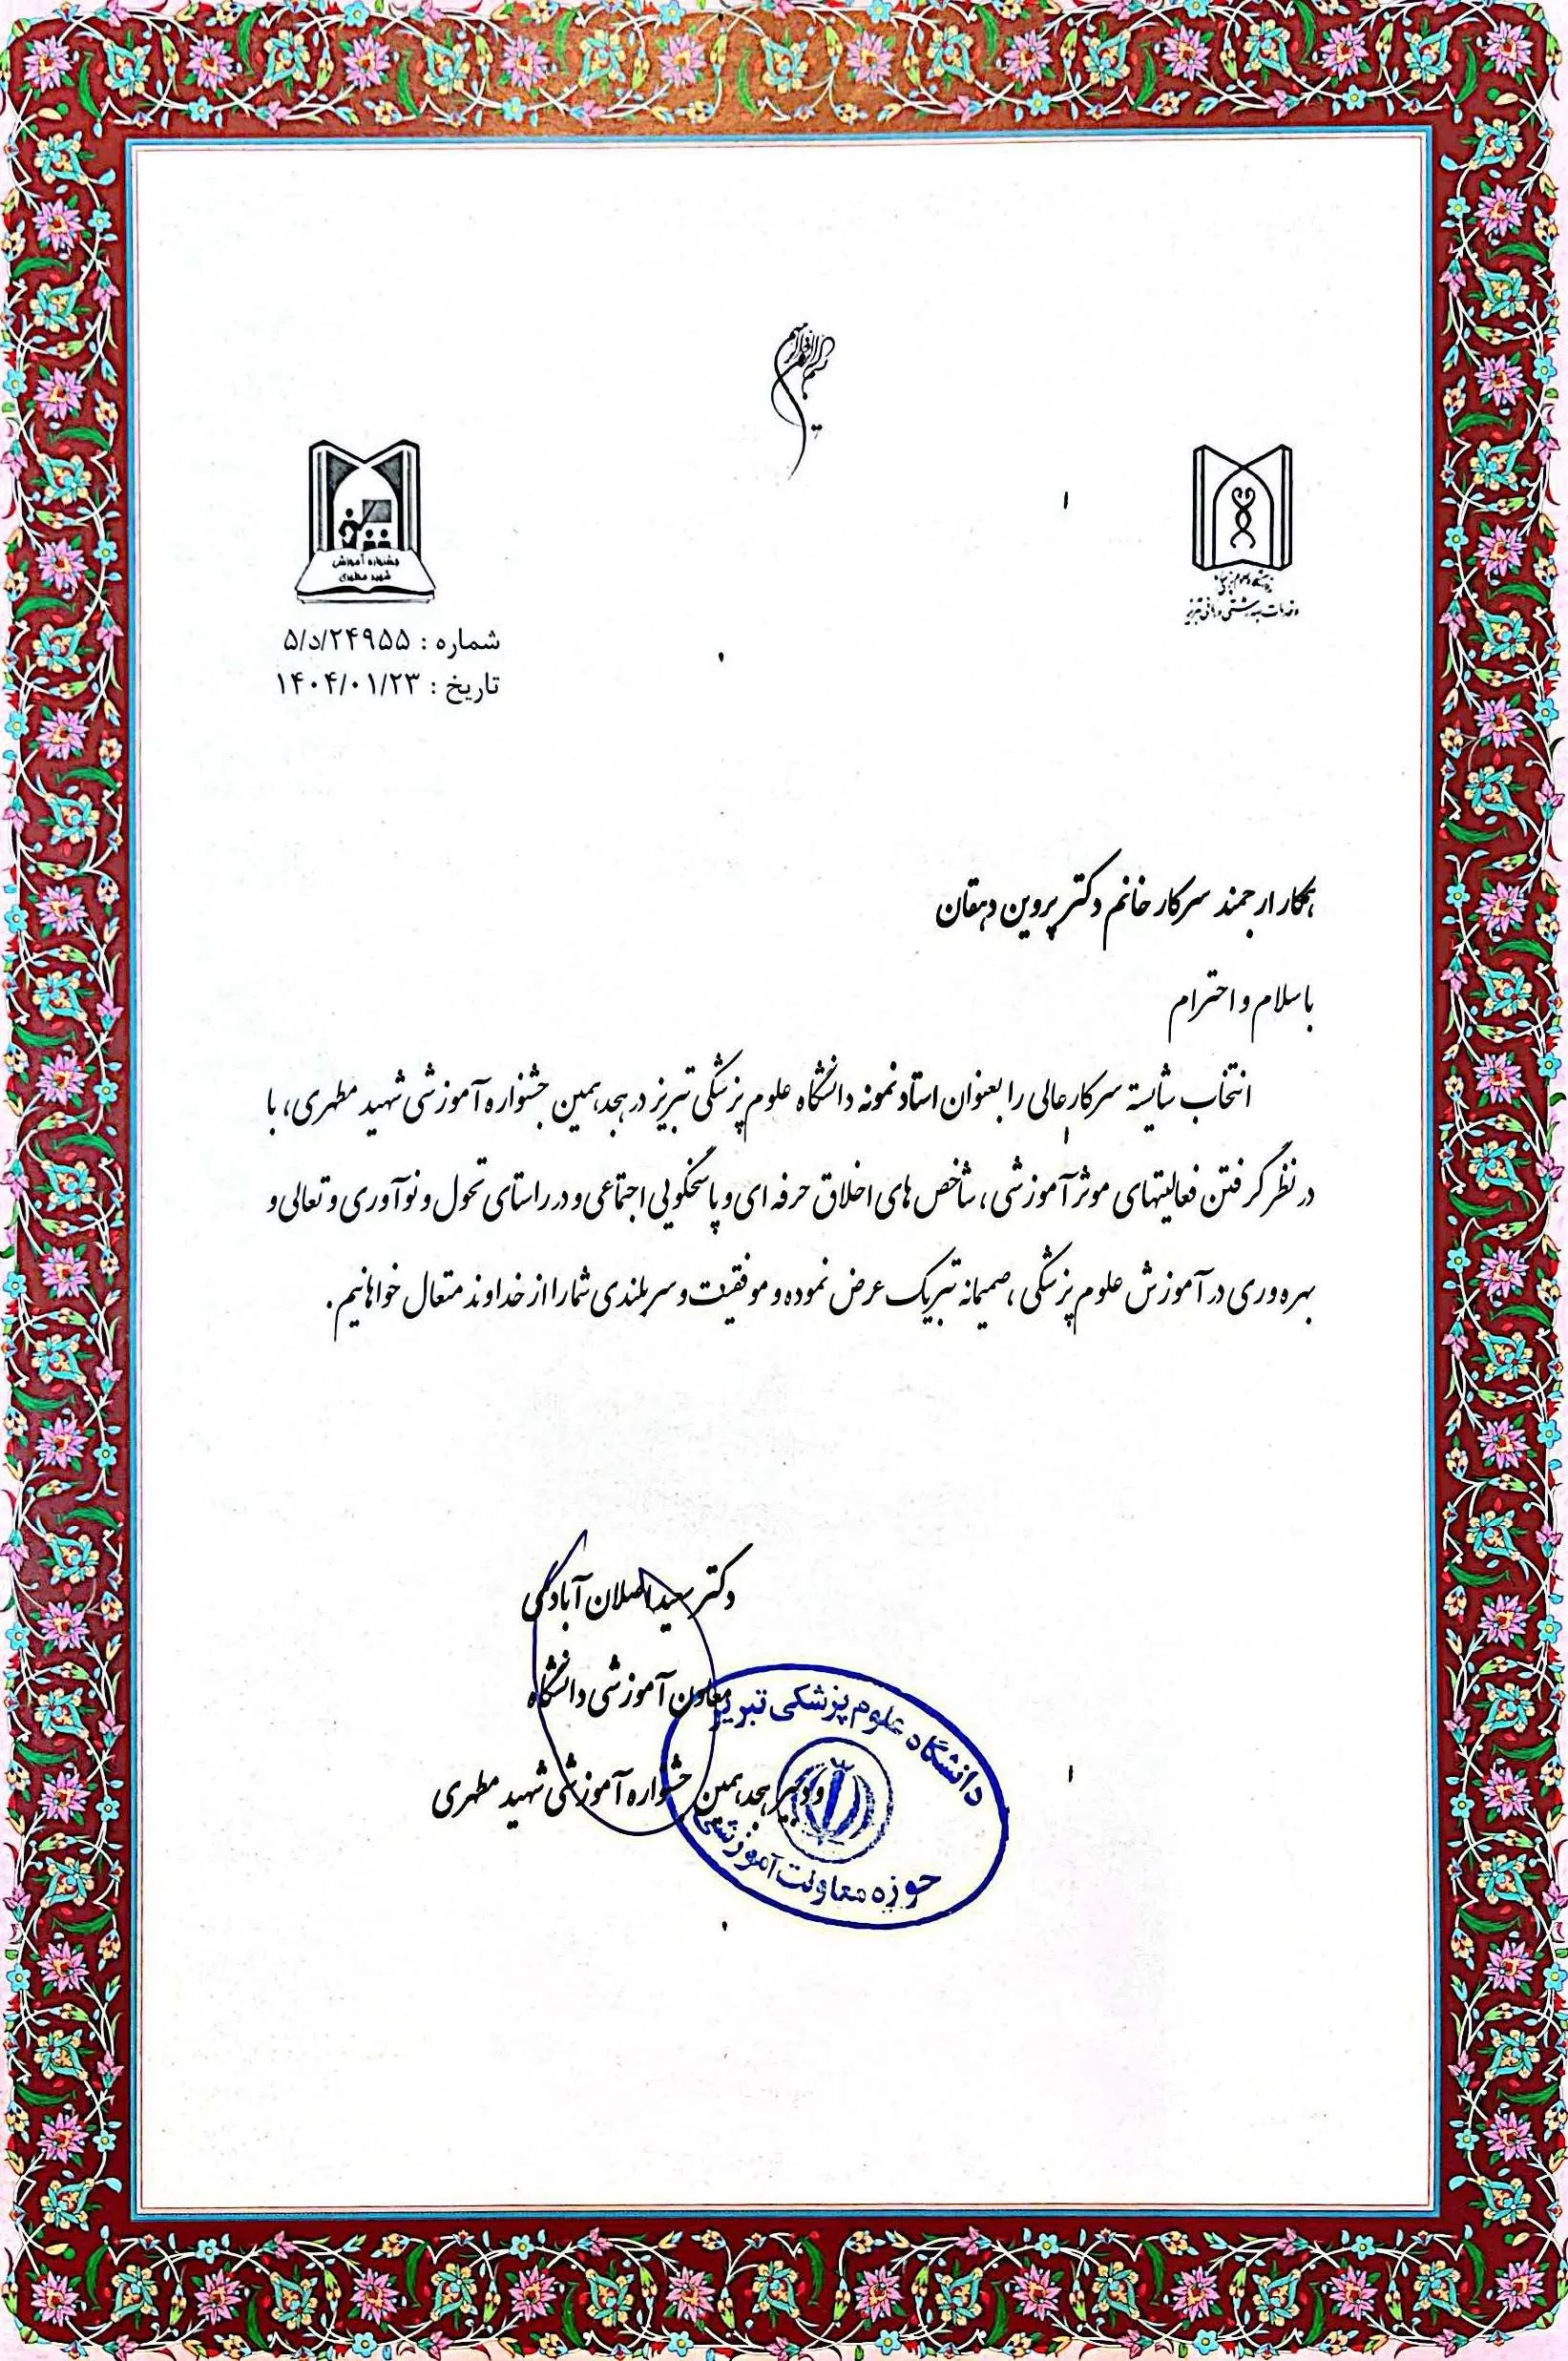 بسم الله الرحمن الرحیم
جشنواره آموزشی
شهید مطهری
دانشگاه علوم پزشکی
و خدمات بهداشتی درمانی تبریز
شماره : ۵/د/۲۴۹۵۵
تاریخ : ۱۴۰۴/۰۱/۲۳
همکار ارجمند سرکار خانم دکتر پروین دهقان
با سلام و احترام
انتخاب شایسته سرکارعالی را بعنوان استاد نمونه دانشگاه علوم پزشکی تبریز در هجدهمین جشنواره آموزشی شهید مطهری، با
در نظر گرفتن فعالیتهای موثر آموزشی، شاخص های اخلاق حرفه ای و پاسخگویی اجتماعی و در راستای تحول و نوآوری و تعالی و
بهره وری در آموزش علوم پزشکی، صمیمانه تبریک عرض نموده و موفقیت و سربلندی شما را از خداوند متعال خواهانیم.
دکتر سعید اصلان آبادی
معاون آموزشی دانشگاه
و دبیر هجدهمین جشنواره آموزشی شهید مطهری
دانشگاه علوم پزشکی تبریز
حوزه معاونت آموزشی